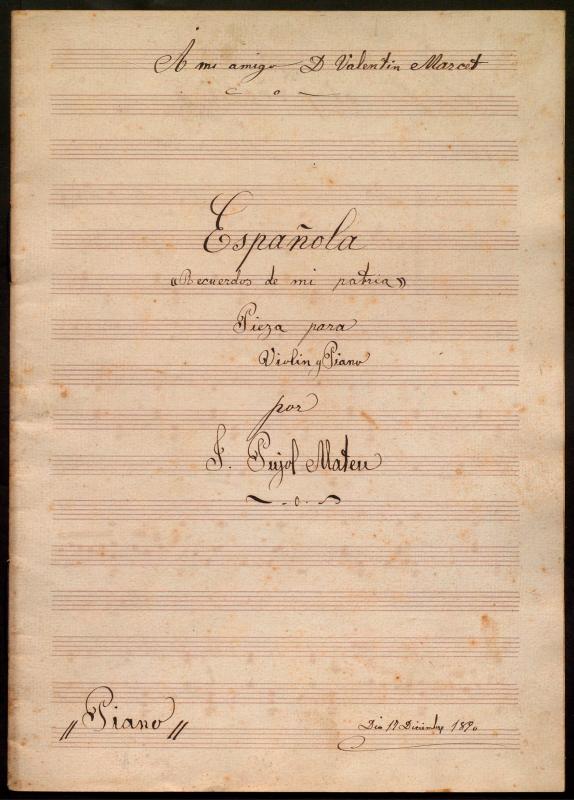 A mi amigo D Valentin Marcet
Española
«Recuerdos de mi patria»
Pieza para
Violin y Piano
por
F. Pujol Mateu
"Piano"
Dia 17 Diciembre 1890